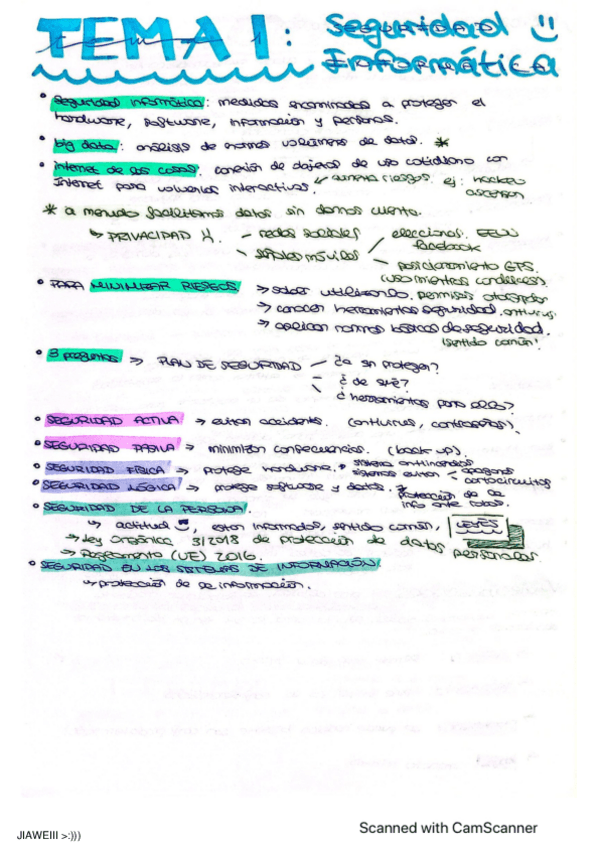 TEMA 1: Seguridad
Informática
• Seguridad informática: medidas encaminadas a proteger el
hardware, software, información y personas.
• big data: análisis de volúmenes de datos. *
• internet de las cosas: conexión de objetos de uso cotidiano con
Internet para volverlos interactivos. ↙ aumenta riesgos. ej: hackeo
ascensor.
* a menudo facilitamos datos sin darnos cuenta.
↳ PRIVACIDAD
- redes sociales
elecciones. EEUU
facebook
- señales móviles
posicionamiento GPS.
(uso mientras conduces).
• PARA MINIMIZAR RIESGOS → saber utilizando. permisos
→ conocer herramientas seguridad. antivirus.
→ aplicar normas básicas de seguridad.
(sentido común!
• 3 preguntas → PLAN DE SEGURIDAD
- ¿a proteger?
- ¿de qué?
¿herramientas para ello?
• SEGURIDAD ACTIVA → evitar accidents. (antivirus, contraseñas).
• SEGURIDAD PASIVA → minimizar consecuencias. (back up).
• SEGURIDAD FÍSICA → protege hardware. * sistema antiincendios
sistemas evitan - apagones
cortocircuitos
• SEGURIDAD LÓGICA → protege software y datos. protección de la
info ante robos.
• SEGURIDAD DE LA PERSONA.
↳ actitud, estar informados, sentido común, LEYES
→ Ley Orgánica 3/2018 de protección de datos personales.
→ Reglamento (UE) 2016.
• SEGURIDAD EN LOS SISTEMAS DE INFORMACIÓN
↳ protección de la información.
JIAWEIII >:)))
Scanned with CamScanner